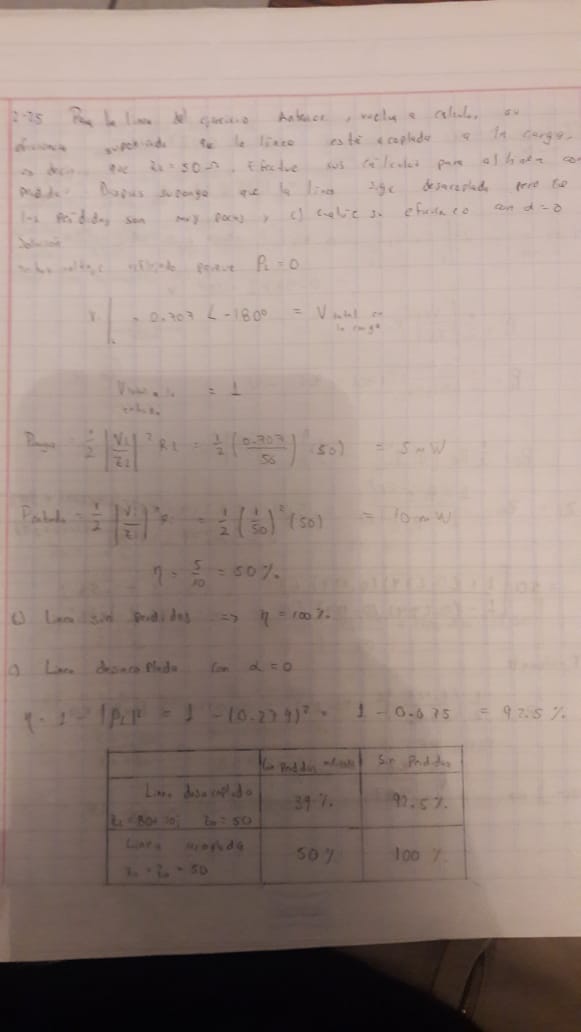 2-25 Para la linea del ejercicio anterior, vuelva a calcular su
eficiencia suponiendo que la linea está acoplada a la carga,
es decir que ZL = 50 Ω. Efectue sus cálculos para al linea con
perdidas. Despues suponga que la linea sigue desacoplada pero que
las perdidas son muy pocas y c) calcule su eficiencia con α = 0
Solución
voltaje reflejado porque PL = 0
= 0.707 ∠ -180° = V total en
la carga
= 1
Pcarga = 1/2 |VL/ZL|² RL = 1/2 (0.707/50)² (50) = 5 mW
Pentrada = 1/2 |Vi/Zi|² = 1/2 (1/50)² (50) = 10 mW
η = 5/10 = 50 %.
Linea sin perdidas => η = 100 %.
Linea desacoplada con α = 0
η = 1 - |ρL|² = 1 - (0.274)² = 1 - 0.075 = 92.5 %
Sin Perdidas
Linea desacoplada 39 % 92.5 %.
Z0 = 50
Linea acoplada 50 % 100 %.
= Z0 = 50